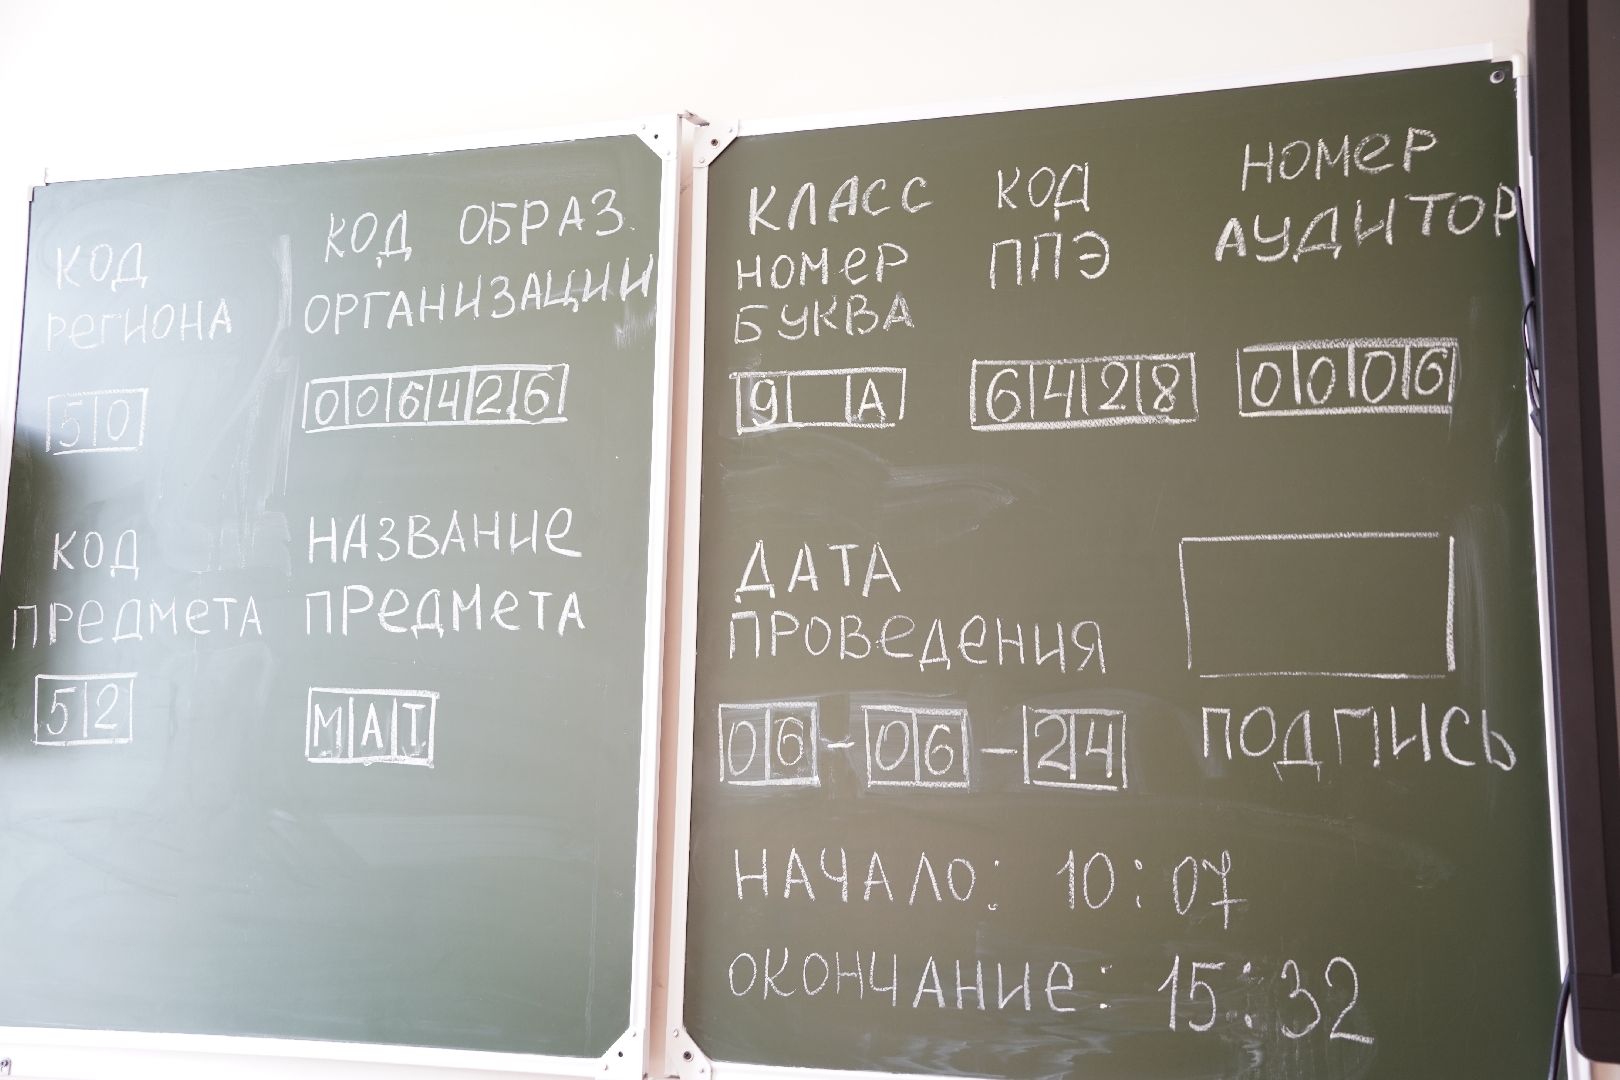 КОД
РЕГИОНА
50
КОД ОБРАЗ.
ОРГАНИЗАЦИИ
006426
КОД
ПРЕДМЕТА
52
НАЗВАНИЕ
ПРЕДМЕТА
МАТ
КЛАСС
НОМЕР
БУКВА
9 А
КОД
ППЭ
6428
НОМЕР
АУДИТОР
0006
ДАТА
ПРОВЕДЕНИЯ
06-06-24
ПОДПИСЬ
НАЧАЛО: 10:07
ОКОНЧАНИЕ: 15:32